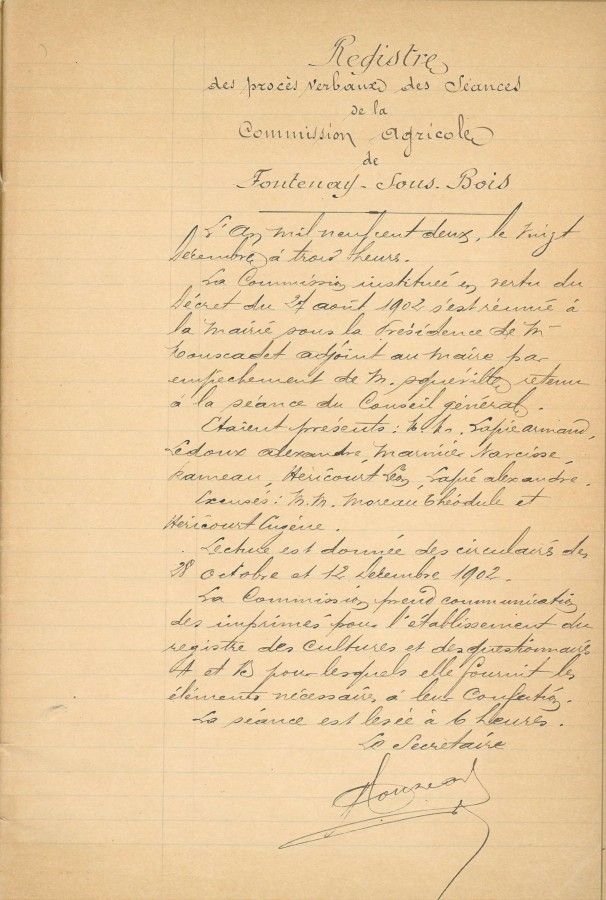 Registre
des procès verbaux des Séances
de la
Commission Agricole
de
Fontenay-Sous-Bois
L'An mil neuf cent deux, le vingt
Décembre à trois heurs.
La Commission instituée en vertu du
Décret du 27 août 1902 s'est réunie à
la Mairie sous la Présidence de Mr
Mouscadet adjoint au Maire par
empechement de M. Squéville retenu
à la séance du Conseil général.
Etaient présents: M.M. Lapie armand,
Ledoux alexandre, Marinier Narcisse,
Rameau, Héricourt Léon, Lapié alexandre.
Excusés: M.M. Moreau Théodule et
Héricourt Eugène.
Lecture est donnée des circulaires des
28 octobre et 12 Decembre 1902.
La Commission prend communication
des imprimés pour l'établissement du
registre des cultures et des questionnaires
A et B pour lesquels elle fournit les
éléments nécessaires à leur
La séance est levée à 6 heures.
Le Secretaire